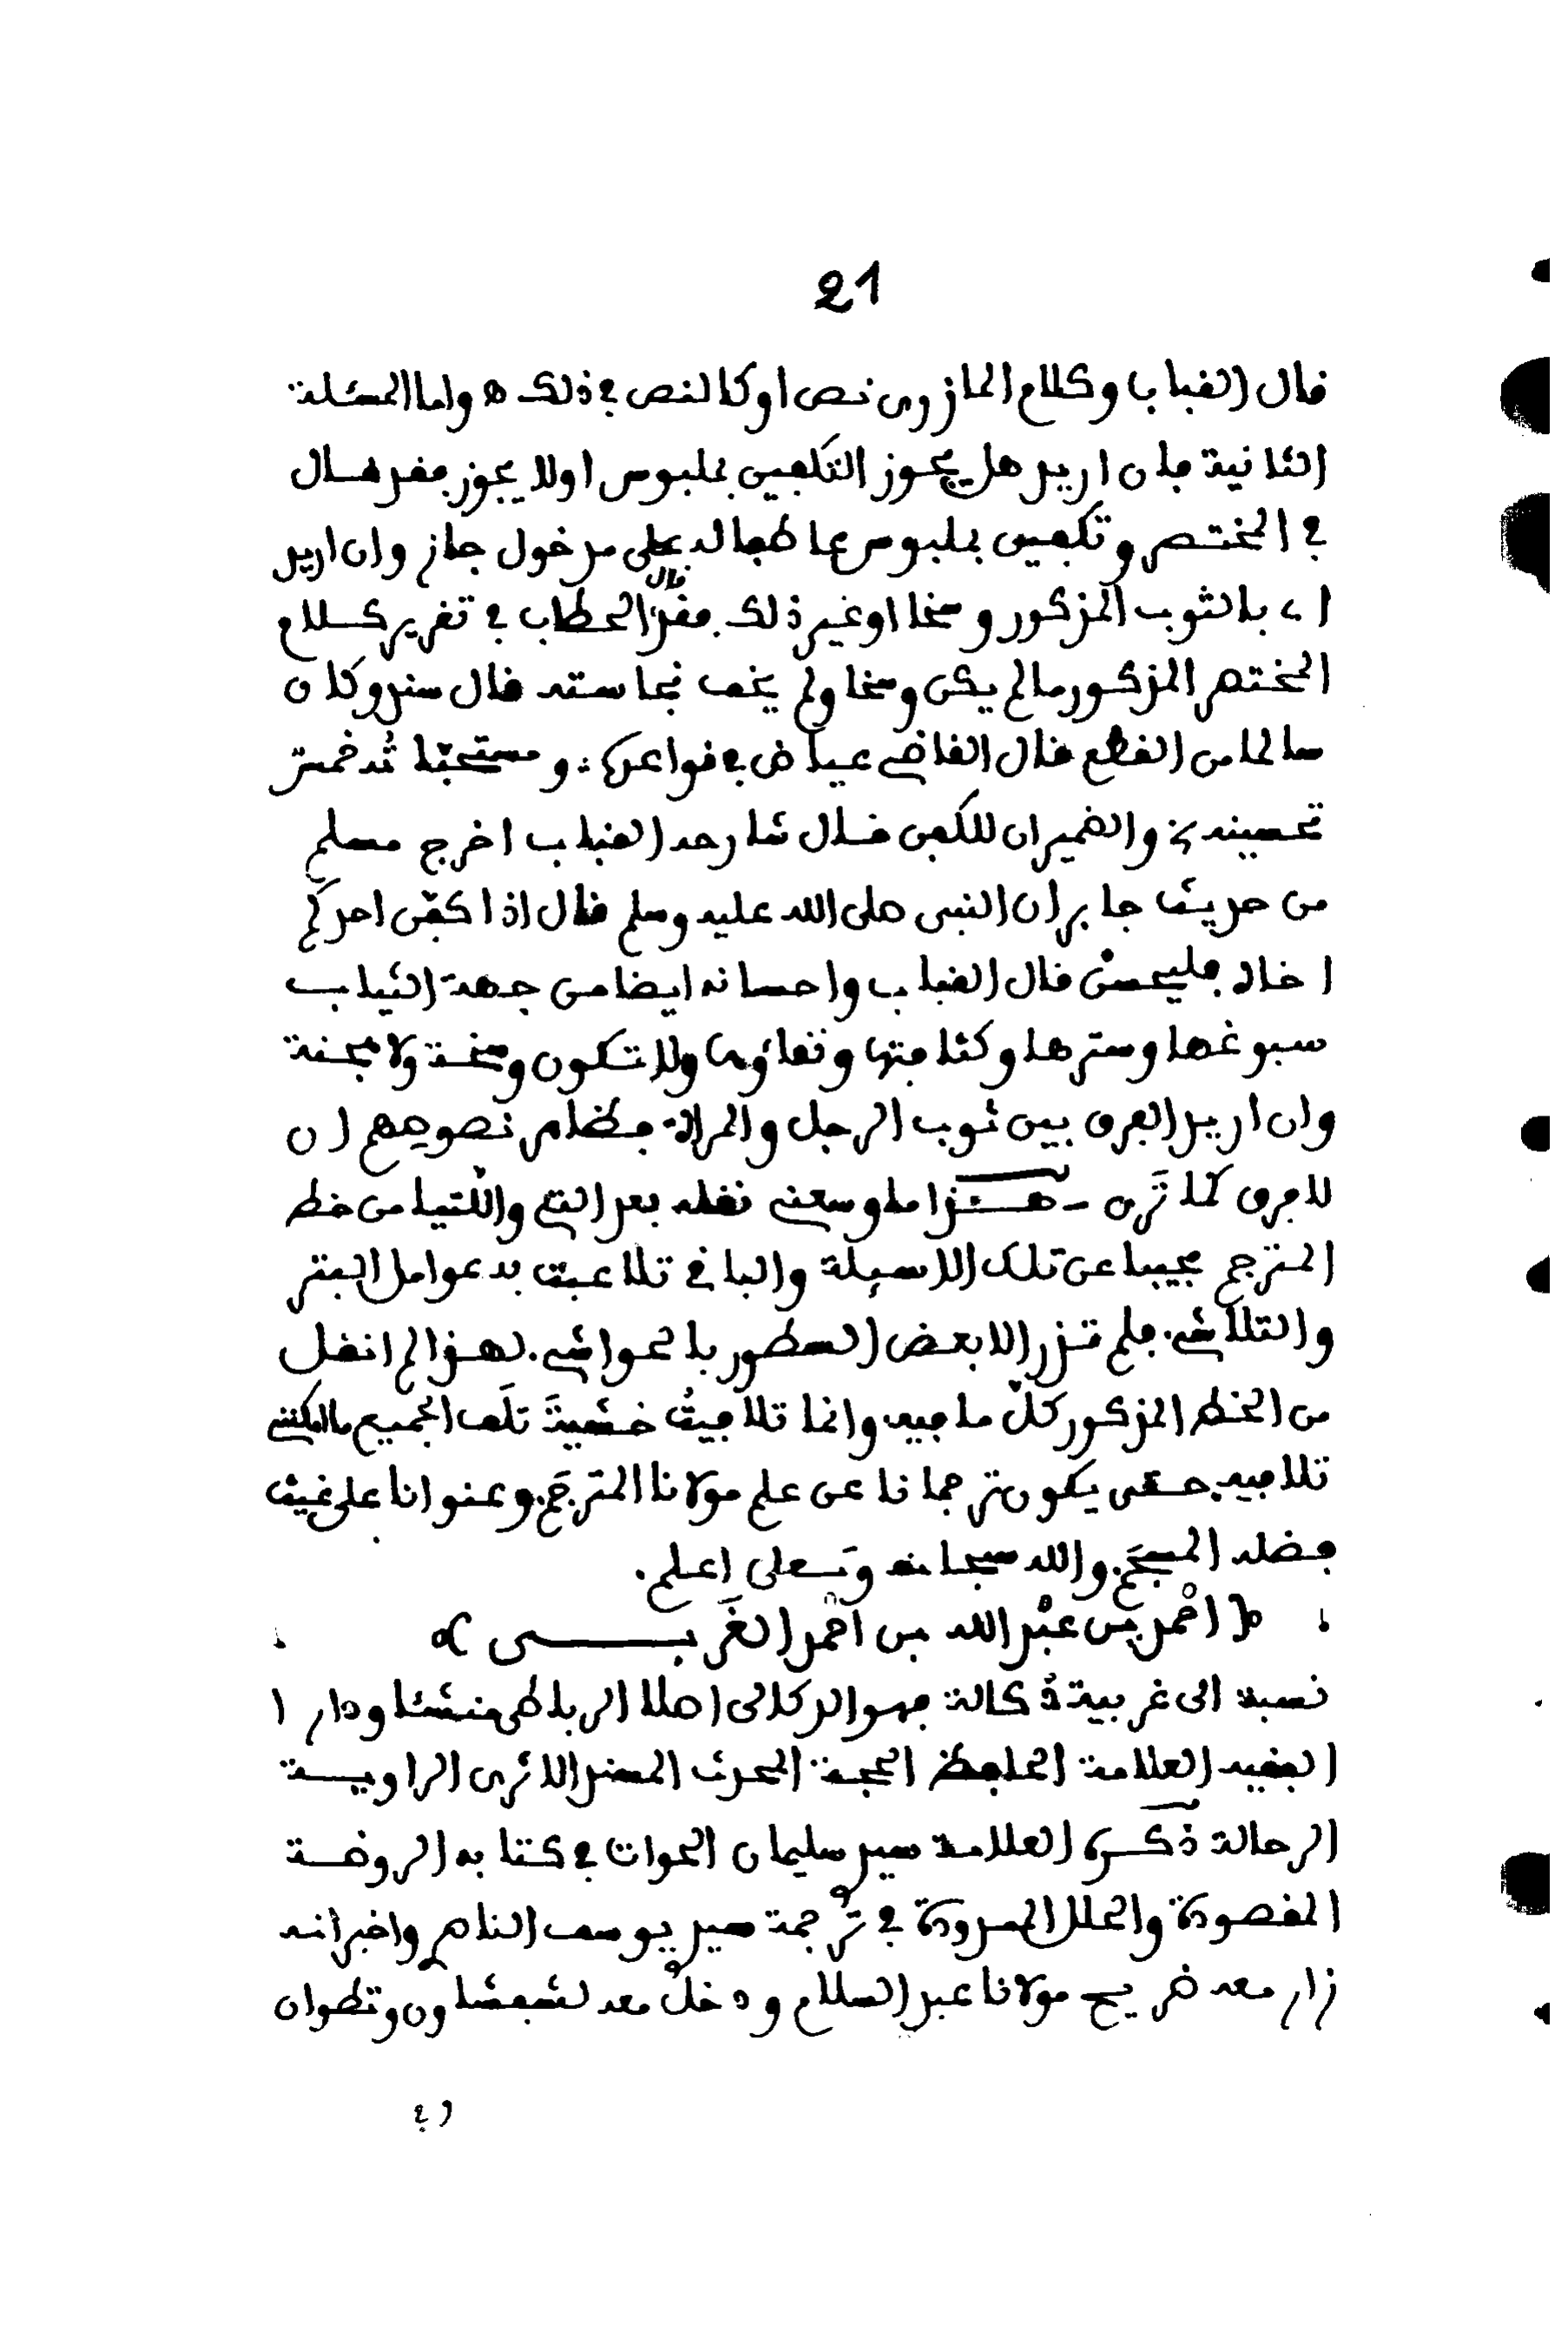 21
قال القباب وكلام المازرى نص او كالنص في ذلك ه واما المسئلة
الثانية فان اريد هل يجوز التكفين بملبوس اولا يجوز. فقد قال
في المختصر وتكفين بملبوس عاطفا له على مدخول جاز وان اريد
بالثوب المذكور وسخا او غير ذلك. فقد قال الحطاب في تقرير كلام
المختصر المذكور مالم يكن وسخا ولم يخف نجاسته قال سند وكان
سالما من القطع قال القاضي عياض في قواعده: ومستحبّاتُه خمس
تحسينه. والضميران للكفن قال شارحه القباب اخرج مسلم
من حديث جابر ان النبى صلى الله عليه وسلم قال اذا كفّن احدكم
اخاه فليحسنْ قال القباب واحسانه ايضا من جهة الثياب
سبوغها وسترها وكثافتها ونقاؤها ولا تكون وسخة ولا
وان اريد الفرق بين ثوب الرجل والمراة. فظاهر نصوصهم ان
لا فرق كما تَرى ـ هـذا ما وسعني نقله بعد التي واللّتيا من خط
المترجم مجيبا عن تلك الاسيلة والباقي تلاعبت به عوامل البتر
والتلاشي. فلم تذر الا بعض السطور بالحواشي. لهذا لم انقل
من الخط المذكور كلّ ما فيه. وانما تلافيتُ خشيةَ تلَف الجميع ما امكنني
تلافيه. حتى يكون ترجمانا عن علم مولانا المترجَم. وعنوانا على غيث
فضله المسجَم. والله سبحانه وتـعلى اعلم.
﴿ احْمد بن عبْد الله بن احْمد الغَربـــى ﴾
نسبة الى غربية دُكالة فهو الدكالى اصلا الرباطى منشئا ودارا
الفقيه العلامة الحافظ الحجة المحدث المسند الاثرى الراويـة
الرحالة ذكـره العلامة سيدِ سليمان الحوات في كتابه الروضـة
المقصودة والحلل الممدودة في تَرْجمة سيدِ يوسف الناصر واخبر انه
زار معه ضريح مولانا عبد السلام ودخل معه لشفشاون وتطوان
وفي